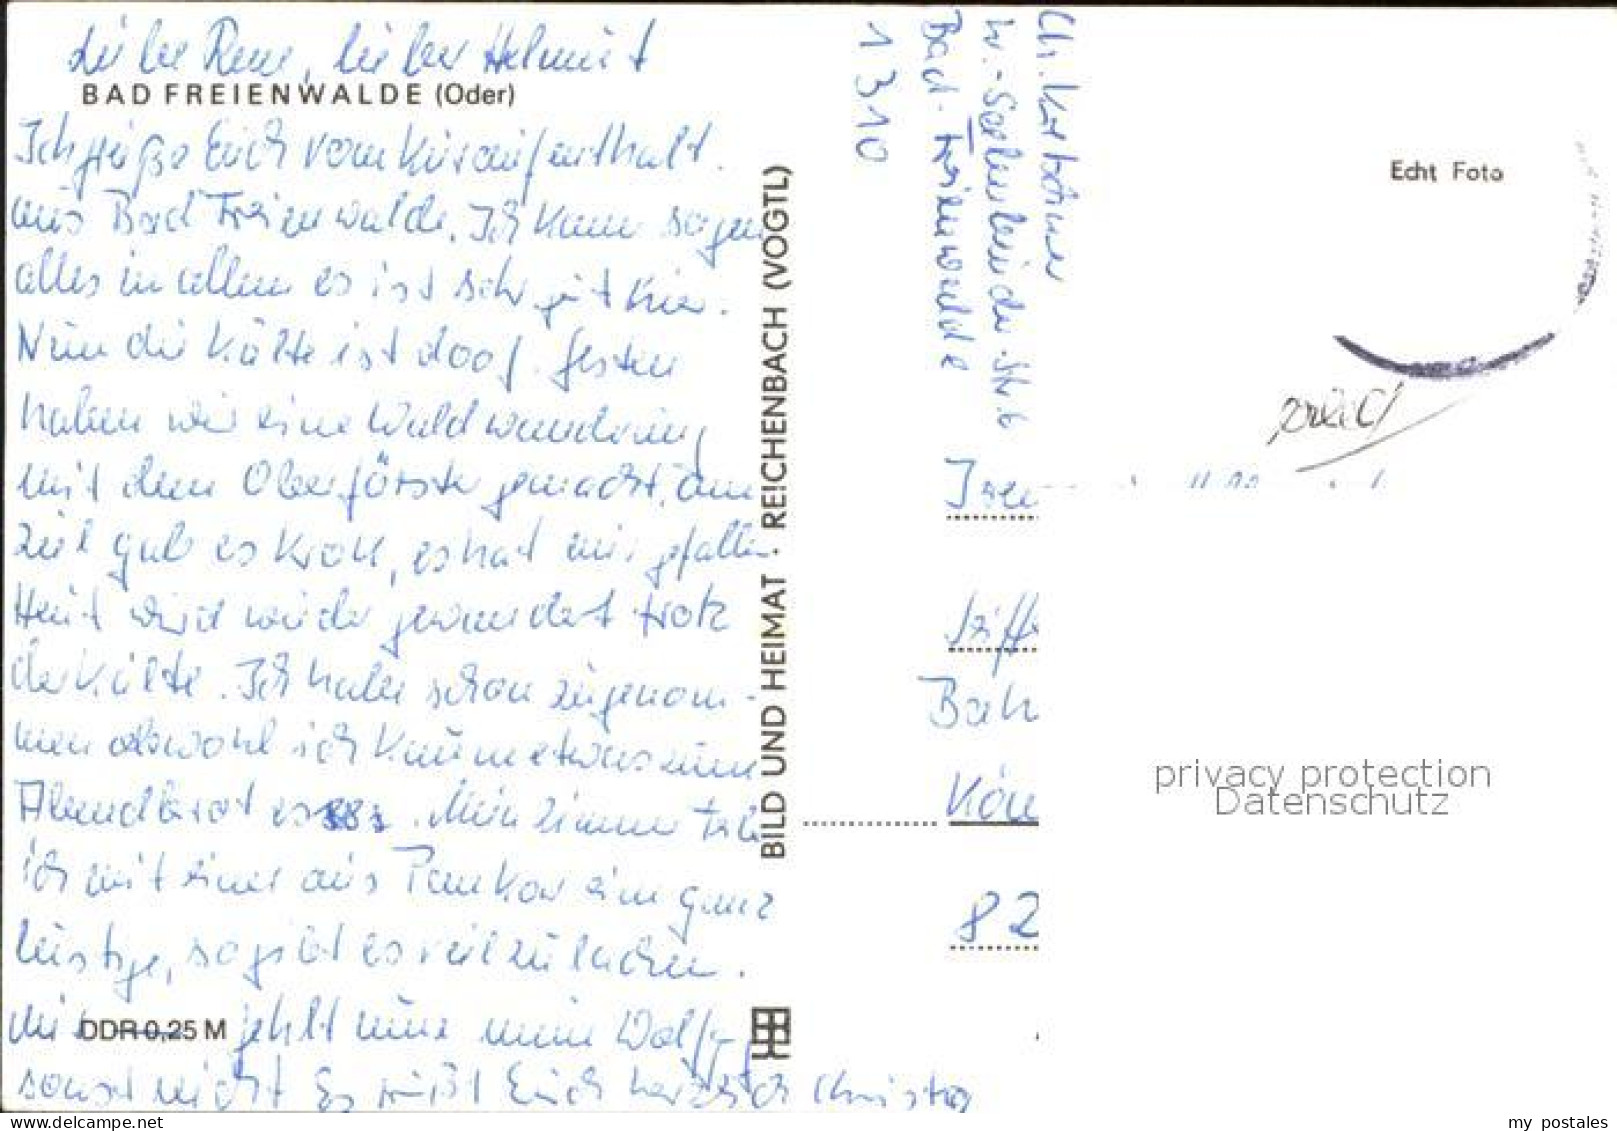 Liebe Rene, lieber Helmut
BAD FREIENWALDE (Oder)
Ich grüße Euch vom Kuraufenthalt
aus Bad Freienwalde. Ich kann sagen
alles in allem es ist sehr gut hier.
Nun die Kälte ist doof. Gestern
haben wir eine Waldwanderung
mit dem Oberförster gemacht, am
Ziel gab es Grok, es hat mir gefallen
Heut wird wieder gewandert trotz
der Kälte. Ich habe schon zugenom-
men obwohl ich kaum etwas zum
Abendbrot esse. Mein Zimmer teile
ich mit einer aus Pankow eine ganz
lustge, so gibt es viel zu lachen.
Mir fehlt nur mein Wolfg.
DDR 0,25 M
sonst nicht Es grüßt Euch herzlich Christa
BILD UND HEIMAT · REICHENBACH (VOGTL)
Ch.
W.-Seelenbinder-Str. 6
Bad-Freienwalde
1310
Echt Foto
Bah
Kön
82
privacy protection
Datenschutz
my postales
www.delcampe.net